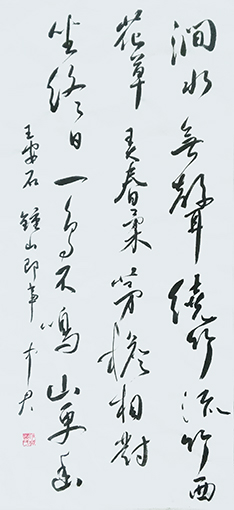 澗水無聲繞竹流竹西
花草弄春柔茅檐相對
坐終日一鳥不鳴山更幽
王安石鍾山即事